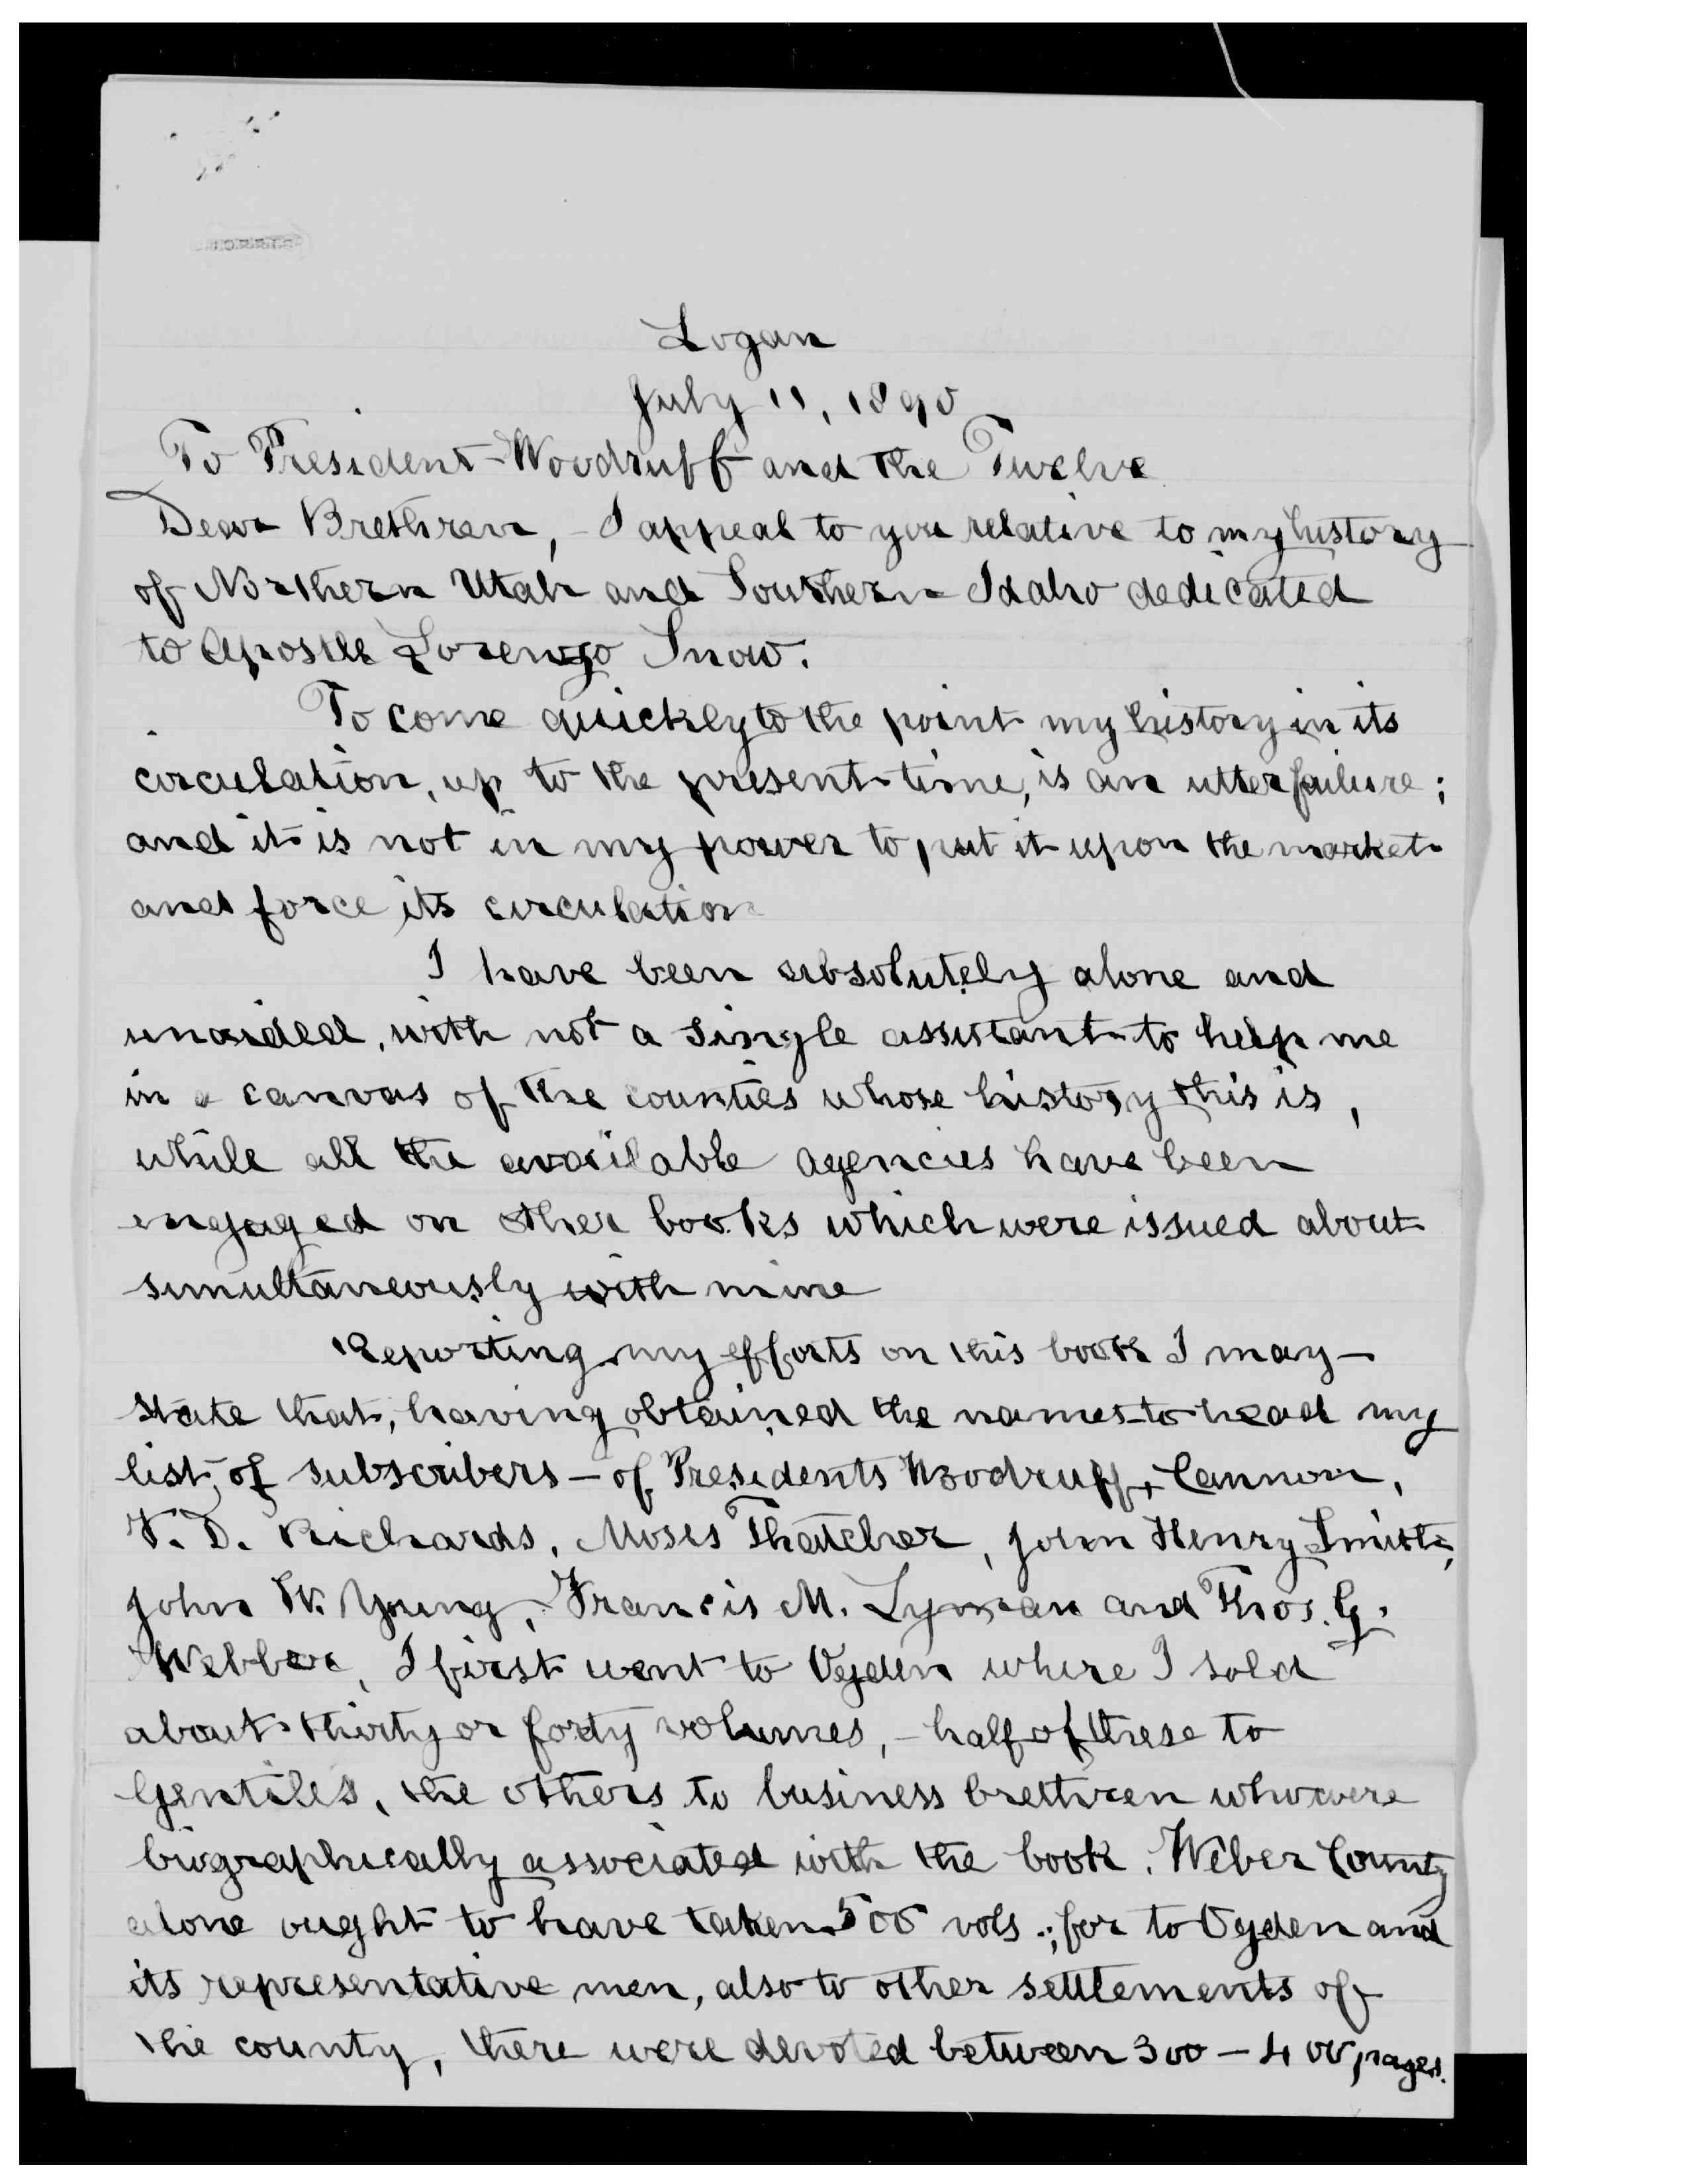 Logan
July 11, 1890
To President Woodruff and the Twelve
Dear Brethren, - I appeal to you relative to my history
of Northern Utah and Southern Idaho dedicated
to Apostle Lorenzo Snow.
To come quickly to the point my history in its
circulation, up to the present time, is an utter failure;
and it is not in my power to put it upon the market
and force its circulation
I have been absolutely alone and
unaided, with not a single assistant to help me
in a canvas of the counties whose history this is,
while all the available agencies have been
engaged on other books which were issued about
simultaneously with mine
Reporting my efforts on this book I may
state that, having obtained the names to head my
list of subscribers - of Presidents Woodruff + Cannon,
F. D. Richards, Moses Thatcher, John Henry Smith,
John W. Young, Francis M. Lyman and Thos. G.
Webber, I first went to Ogden where I sold
about thirty or forty volumes, - half of these to
Gentiles, the others to business brethren who were
biographically associated with the book. Weber County
alone ought to have taken 500 vols.; for to Ogden and
its representative men, also to other settlements of
the county, there were devoted between 300 - 400 pages.